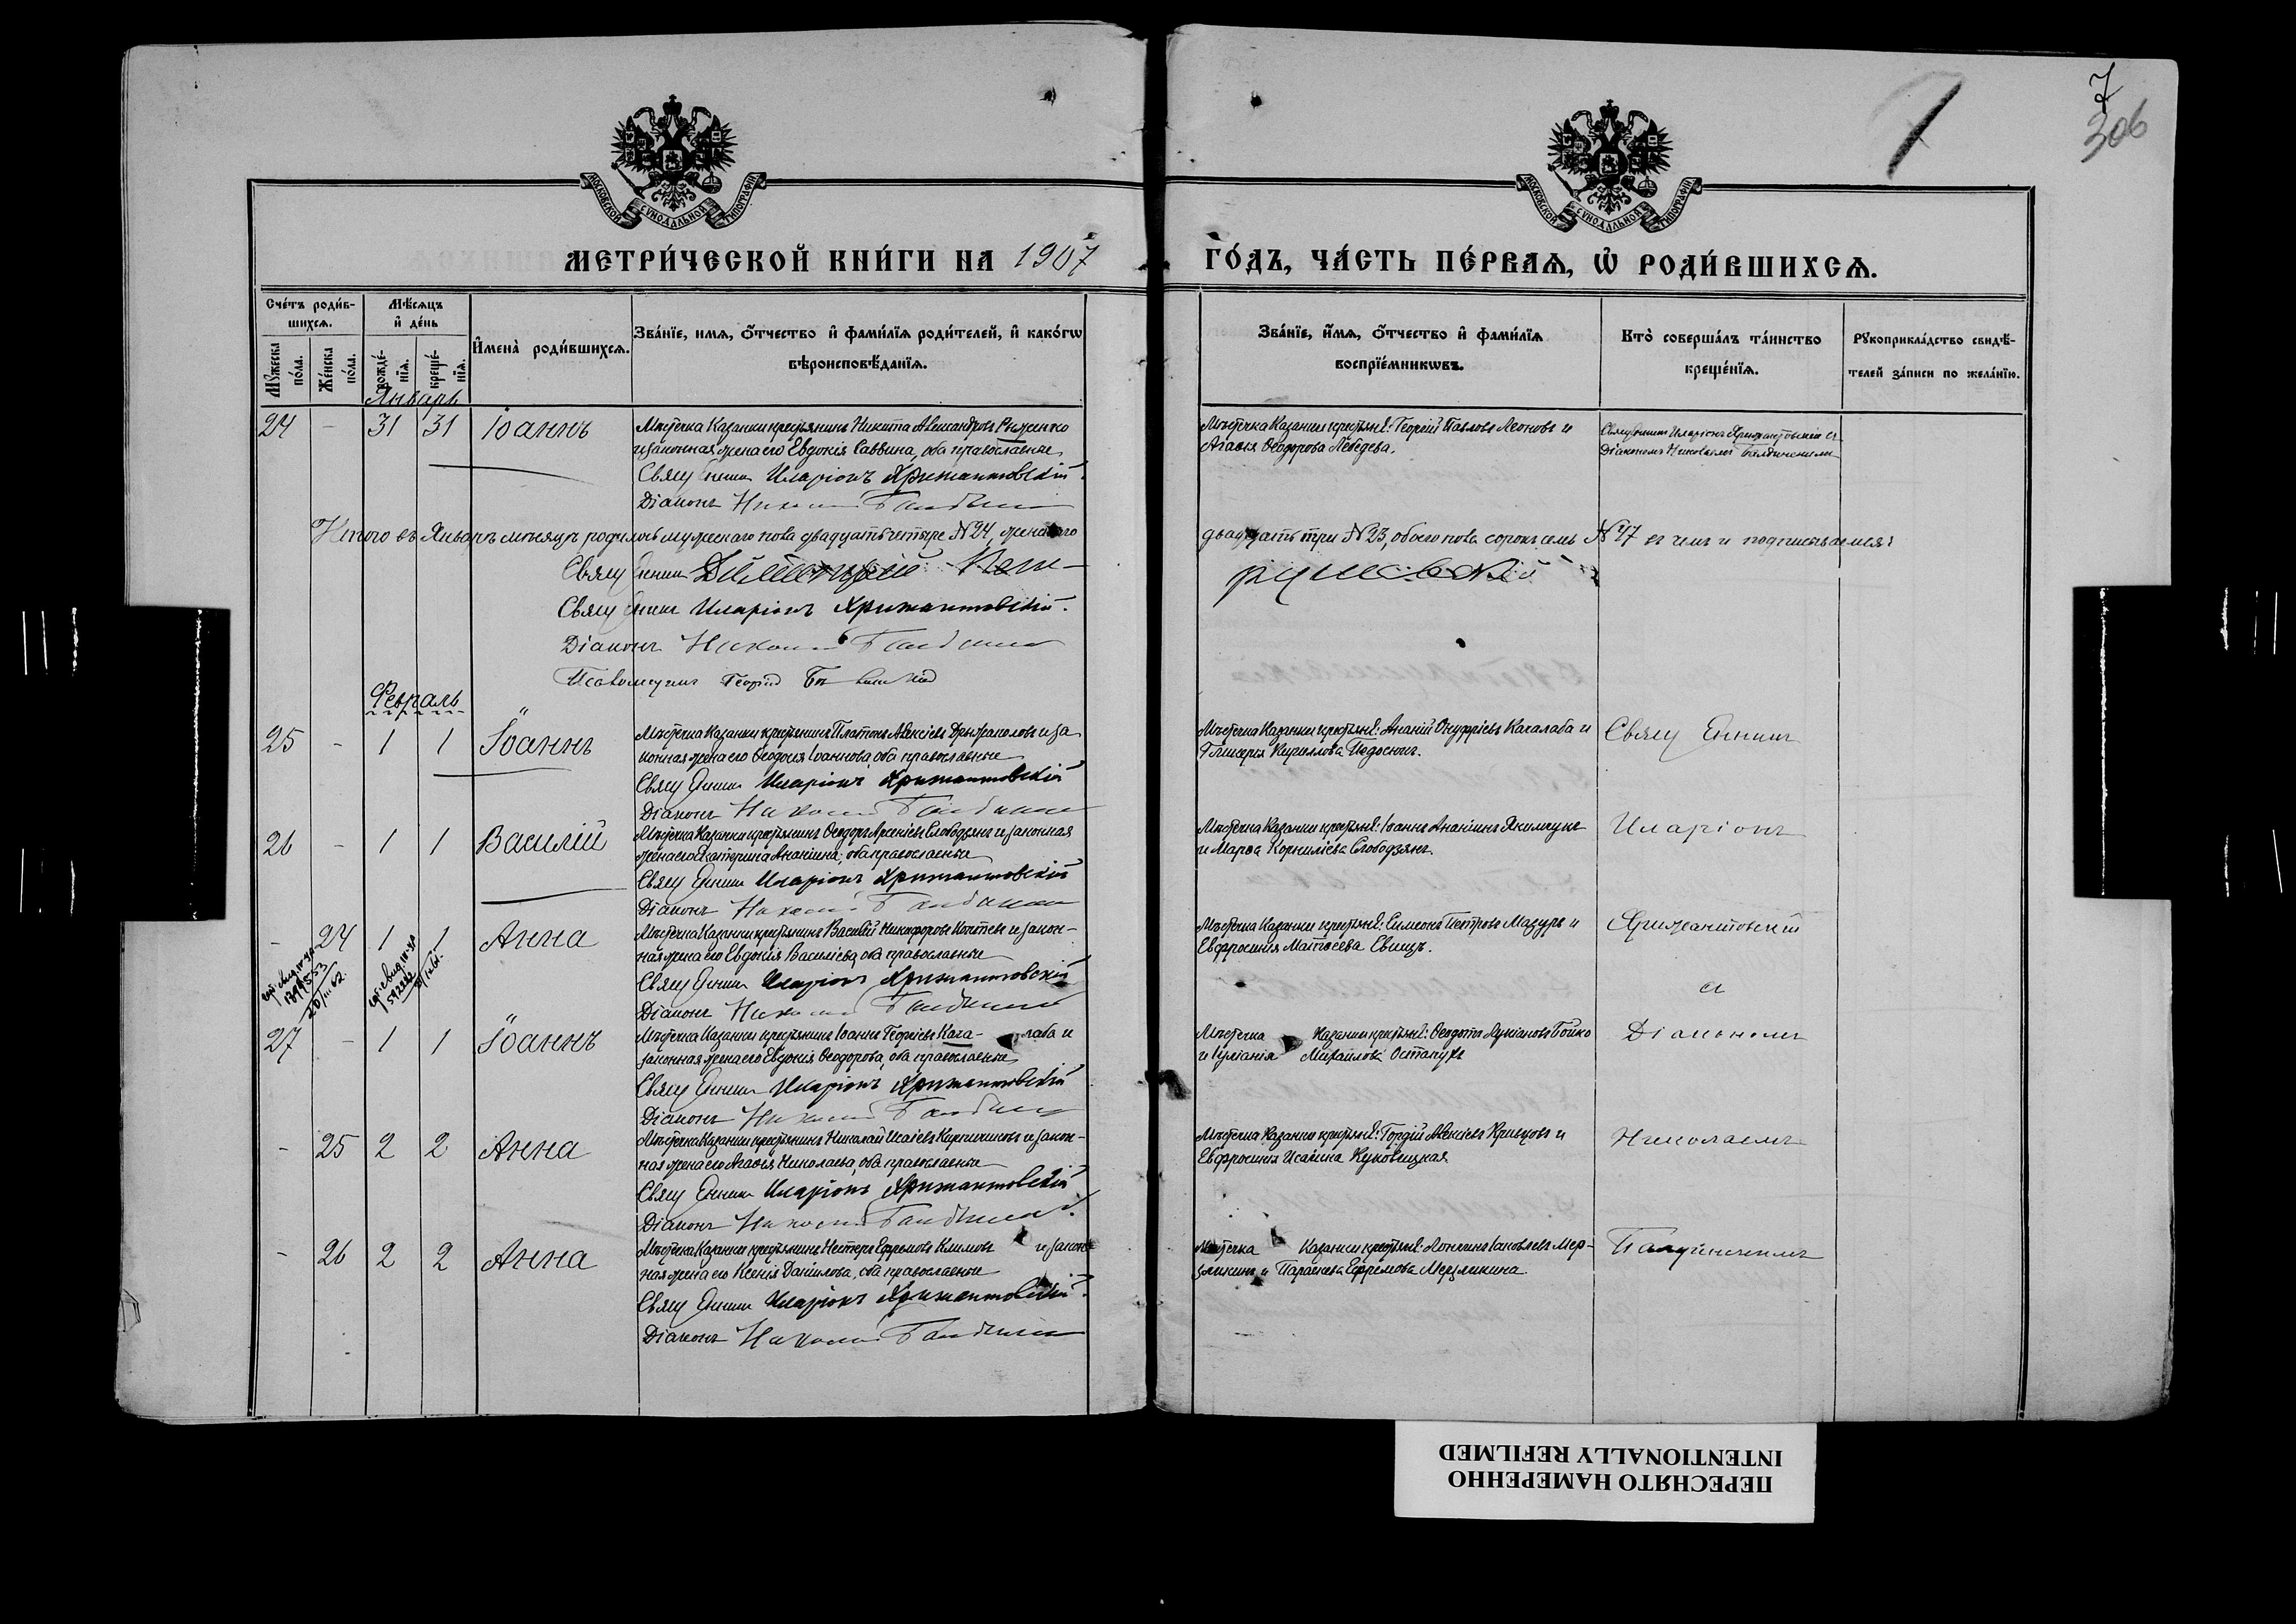 7
306
МОСКОВСКОЙ СУНОДАЛЬНОЙ ТИПОГРАФІИ
МОСКОВСКОЙ СУНОДАЛЬНОЙ ТИПОГРАФІИ
МЕТРИ́ЧЕСКОЙ КНИ́ГИ НА 1907
ГО́ДЪ, ЧА́СТЬ ПЕ́РВАѦ, Ѡ҆ РОДИ́ВШИХСѦ.
Счетъ роди́в-
шихсѧ.
Мѣ́сѧцъ
и҆ де́нь
И҆мена̀ роди́вшихсѧ.
Зва́нїе, имѧ, о҆́тчество и҆ фами́лїѧ роди́телей, и҆ како́гѡ
вѣроисповѣ́данїѧ.
Мꙋ́жеска
по́ла.
Же́нска
по́ла.
рожде́-
нїѧ.
креще́-
нїѧ.
Зва́нїе, и҆́мѧ, о҆́тчество и҆ фами́лїѧ
воспрїе́мникѡвъ.
Кто̀ соверша́лъ та́инство
креще́нїѧ.
Рꙋкоприкла́дство свидѣ́-
телей за́писи по жела́нїю.
Январь
24 - 31 31 Іоаннъ
Мѣстечка Казанки крестьянинъ Никита Александровъ Рыженко
и законная жена его Евдокія Саввина, оба православные
Священникъ Иларіонъ Хрижантовскій.
Діаконъ
Мѣстечка Казанки крестьяне: Георгій Павловъ Леоновъ и
Агаѳія Ѳеодорова Лебедева.
Священникъ Иларіонъ Хрижантовскій съ
Діакономъ Николаемъ
Итого въ Январѣ мѣсяцѣ родилось мужескаго пола двадцать четыре №24, женскаго
двадцать три №23, обоего пола сорокъ семь №47 въ чемъ и подписываемся:
Священникъ Димитрій
Священникъ Иларіонъ Хрижантовскій.
Діаконъ
Псаломщикъ Георгій
Февраль
25 - 1 1 Іоаннъ
Мѣстечка Казанки крестьянинъ Платонъ Алексіевъ и за
конная жена его Ѳеодосія Іоаннова, оба православные
Священникъ Иларіонъ Хрижантовскій
Діаконъ
Мѣстечка Казанки крестьяне: Ананій Онуфріевъ Качалаба и
Гликерія Кириллова
Священникъ
26 - 1 1 Василій
Мѣстечка Казанки крестьянинъ Ѳеодоръ Арсеніевъ Слободзянъ и законная
жена его Екатерина Ананіина, оба православные
Священникъ Иларіонъ Хрижантовскій
Діаконъ
Мѣстечка Казанки крестьяне: Іоаннъ Ананіинъ Якимчукъ
и Марѳа Корниліева Слободзянъ.
Иларіонъ
- 24 1 1 Анна
Мѣстечка Казанки крестьянинъ Василій Никифоровъ и закон-
ная жена его Евдокія Василіева, оба православные
Священникъ Иларіонъ Хрижантовскій
Діаконъ
Мѣстечка Казанки крестьяне: Симеонъ Петровъ Мазуръ и
Евфросинія Матѳеева Свищъ.
Хрижантовскій
съ
27 - 1 1 Іоаннъ
Мѣстечка Казанки крестьянинъ Іоаннъ Георгіевъ Кача- лаба и
законная жена его Евдокія Ѳеодорова, оба православные
Священникъ Иларіонъ Хрижантовскій
Діаконъ
Мѣстечка Казанки крестьяне: Ѳеодотъ Лукіановъ Бойко
и Іуліанія Михаилова Остапукъ
Діакономъ
- 25 2 2 Анна
Мѣстечка Казанки крестьянинъ Николай Исаіевъ Кирпичниковъ и закон-
ная жена его Агаѳія Николаева, оба православные
Священникъ Иларіонъ Хрижантовскій
Діаконъ
Мѣстечка Казанки крестьяне: Гордій Алексіевъ Кривцовъ и
Евфросинія Исаіина Куковицкая
Николаемъ
- 26 2 2 Анна
Мѣстечка Казанки крестьянинъ Несторъ Ефремовъ Климовъ и закон-
ная жена его Ксенія Даніилова, оба православные
Священникъ Иларіонъ Хрижантовскій.
Діаконъ
Мѣстечка Казанки крестьяне: Логгинъ Іаковлевъ Мер-
зликинъ и Параскева Ефремова Мерзликина.
ПЕРЕСНЯТО НАМЕРЕННО
INTENTIONALLY REFILMED